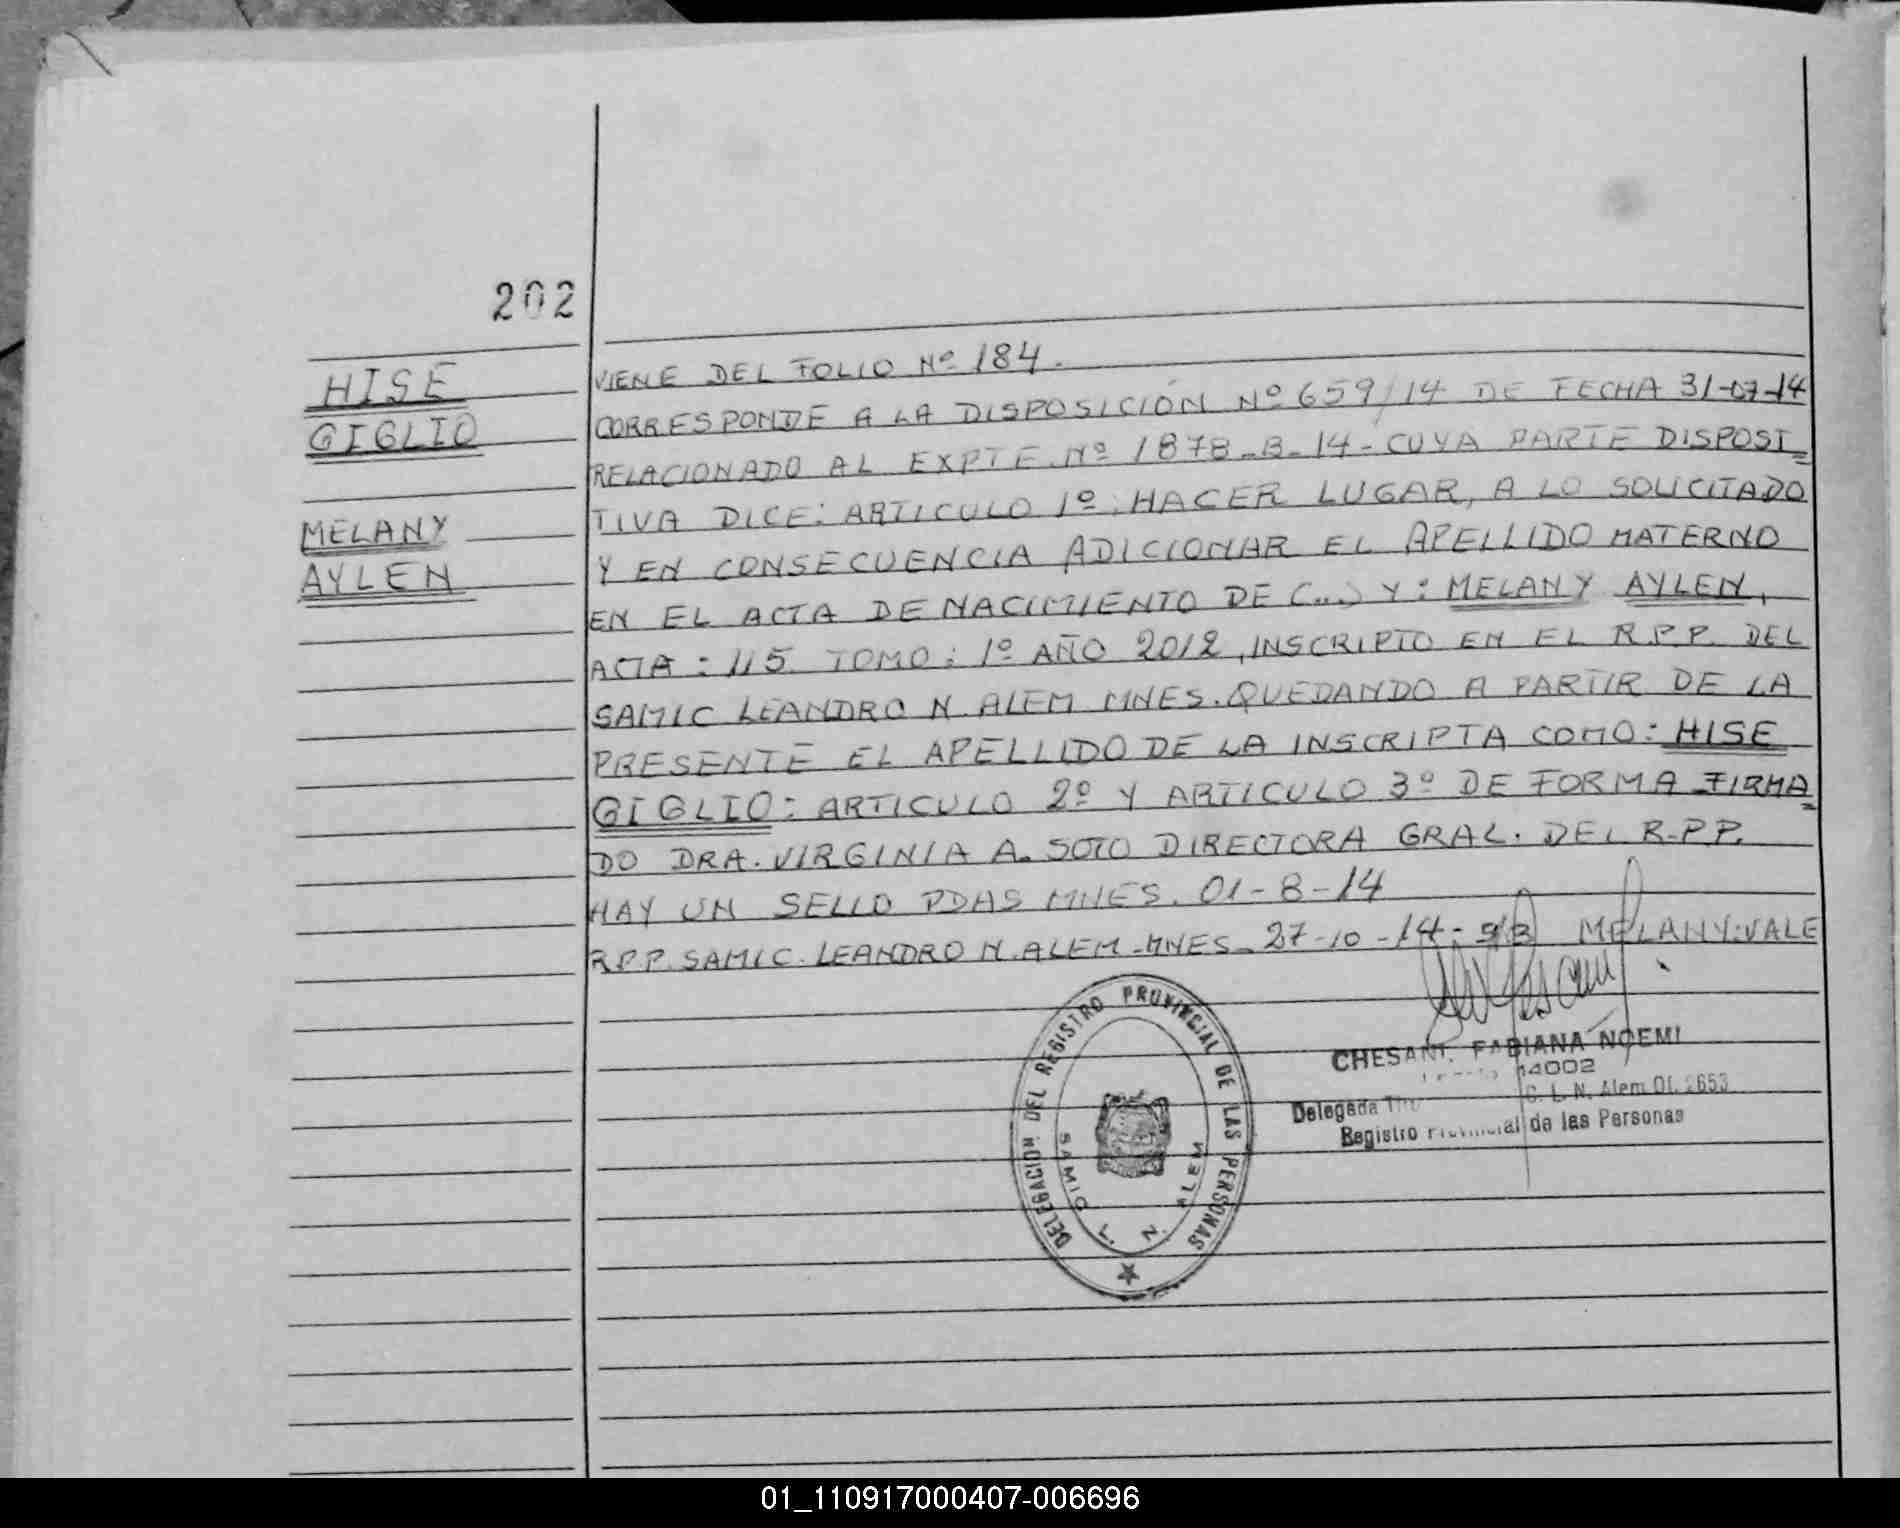 202
HISE
GIGLIO
MELANY
AYLEN
VIENE DEL FOLIO Nº 184.
CORRESPONDE A LA DISPOSICIÓN Nº 659/14 DE FECHA 31-07-14
RELACIONADO AL EXPTE. Nº 1878-B-14- CUYA PARTE DISPOSI=
TIVA DICE: ARTICULO 1º: HACER LUGAR, A LO SOLICITADO
Y EN CONSECUENCIA ADICIONAR EL APELLIDO MATERNO
EN EL ACTA DE NACIMIENTO DE (...) Y: MELANY AYLEN,
ACTA: 115. TOMO: 1º AÑO 2012, INSCRIPTO EN EL R.P.P. DEL
SAMIC LEANDRO N. ALEM MNES. QUEDANDO A PARTIR DE LA
PRESENTE EL APELLIDO DE LA INSCRIPTA COMO: HISE
GIGLIO: ARTICULO 2º Y ARTICULO 3º DE FORMA FIRMA=
DO DRA. VIRGINIA A. SOTO DIRECTORA GRAL. DEL R.P.P.
HAY UN SELLO PDAS MNES. 01-8-14
R.P.P. SAMIC. LEANDRO N. ALEM-MNES- 27-10-14- MELANY: VALE
DELEGACION DEL REGISTRO PROVINCIAL DE LAS PERSONAS
SAMIC L. N. ALEM
CHESANI, FABIANA NOEMI
14002
Delegada L. N. Alem Of. 2653
Registro Provincial de las Personas
01_110917000407-006696